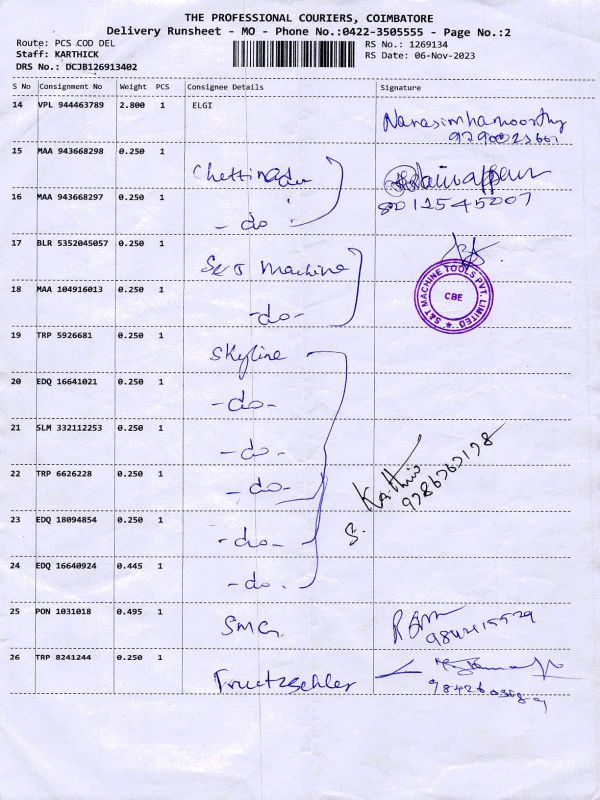 THE PROFESSIONAL COURIERS, COIMBATORE
Delivery Runsheet - MO - Phone No.:0422-3505555 - Page No.:2
Route: PCS COD DEL
RS No.: 1269134
Staff: KARTHICK
RS Date: 06-Nov-2023
DRS No.: DCJB126913402
S No Consignment No Weight PCS Consignee Details Signature
14 VPL 944463789 2.800 1 ELGI
Narasimhamoorthy
15 MAA 943668298 0.250 1
Chettinadu
8012545007
16 MAA 943668297 0.250 1
- do -
17 BLR 5352045057 0.250 1
S&T Machine
S&T MACHINE TOOLS PVT. LIMITED
CBE
18 MAA 104916013 0.250 1
-do-
19 TRP 5926681 0.250 1
Skyline
20 EDQ 16641021 0.250 1
-do-
21 SLM 332112253 0.250 1
-do-
S. Karthic
22 TRP 6626228 0.250 1
-do-
23 EDQ 18094854 0.250 1
-do-
24 EDQ 16640924 0.445 1
-do.
25 PON 1031018 0.495 1
SMG.
26 TRP 8241244 0.250 1
Truetzschler